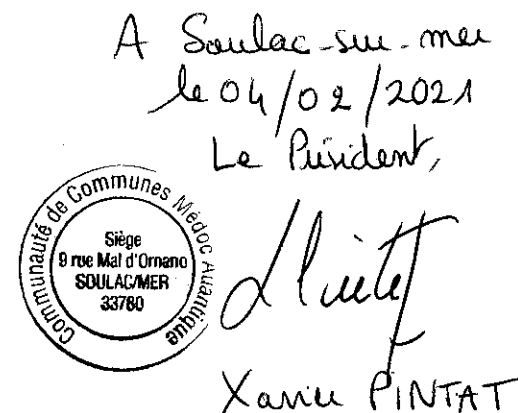 A Soulac-sur-mer
le 04/02/2021
Le Président,
Communauté de Communes Médoc Atlantique
Siège
9 rue Mal d'Ornano
SOULAC/MER
33780
Xavier PINTAT